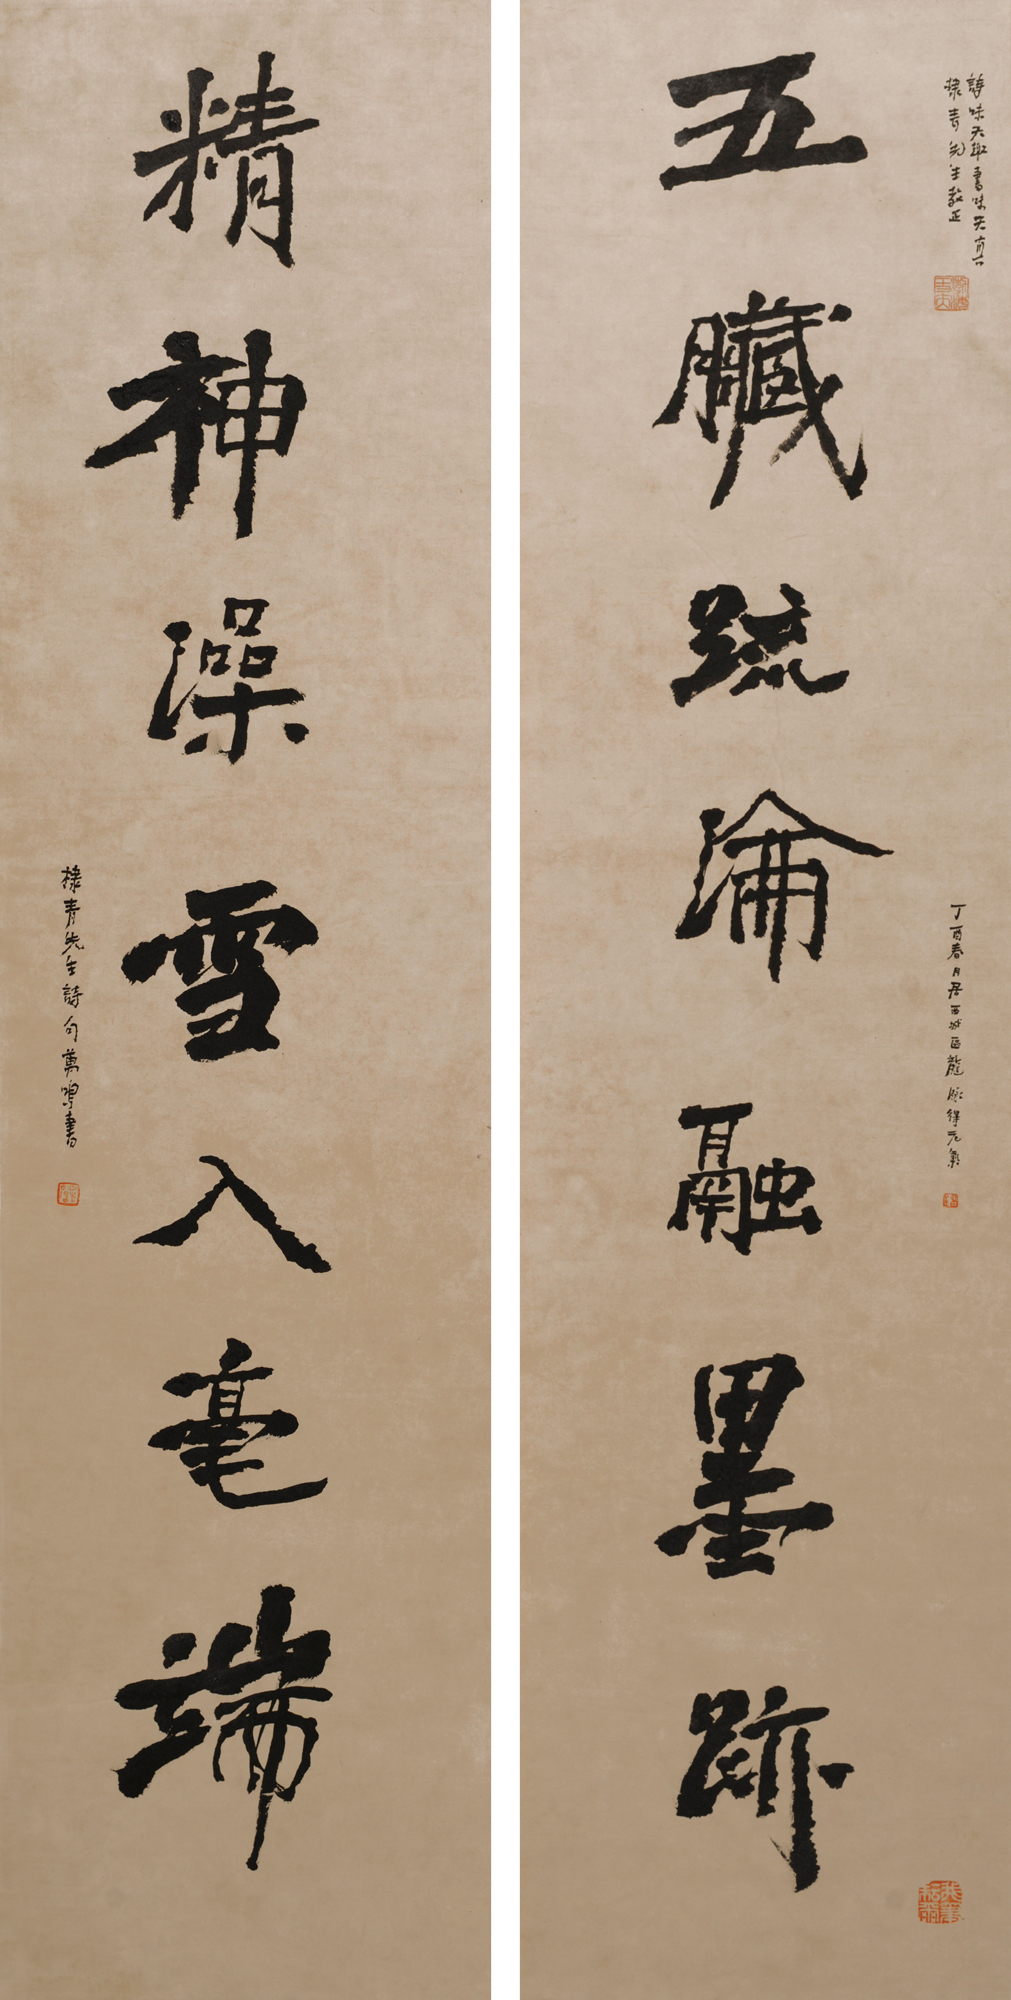 詩味天趣書味天真
棣青先生教正
丁酉春月居西城區龍脉得元氣
五臟疏淪融墨跡
精神澡雪入毫端
棣青先生詩句萬鳴書